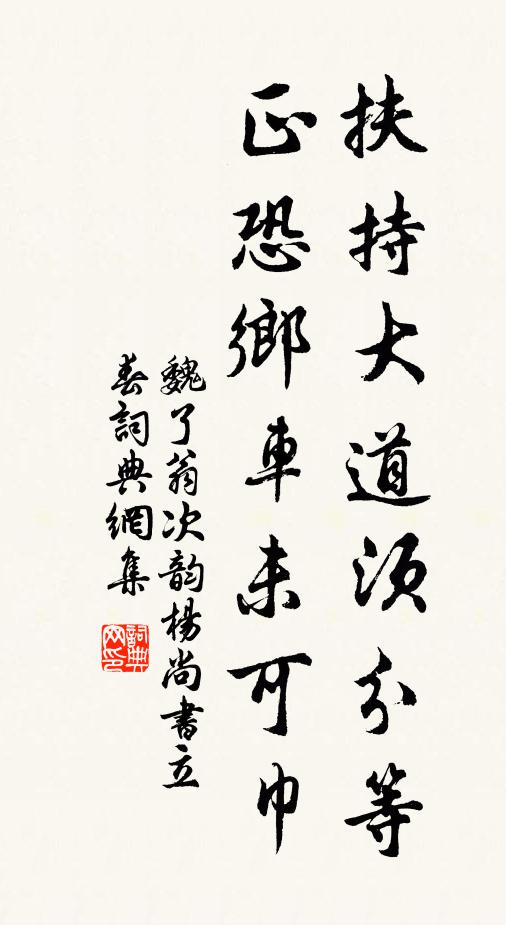 扶持大道須分等
正恐鄉車未可巾
魏了翁次韵楊尚書立
春詞典網集
詞典
网印